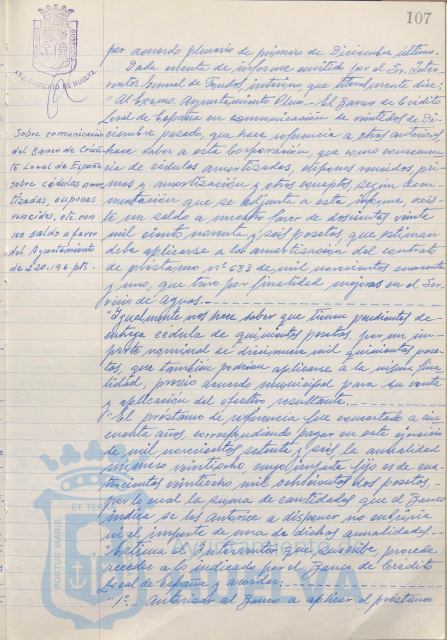 107
AYUNTAMIENTO DE HUELVA
por acuerdo plenario de primero de Diciembre último.
Dada cuenta de informe emitido por el Sr. Inter-
ventor General de Fondos, interino, que literalmente dice:
"Al Excmo. Ayuntamiento Pleno.- El Banco de Crédito
Local de España en comunicación de veintidos de Di-
ciembre pasado, que hace referencia a otras anteriores
hace saber a esta Corporación que como consecuen-
cia de cédulas amortizadas, cupones vencidos, pri-
mas y amortización y otros conceptos, según docu-
mentación que se adjunta a este informe, exis-
te un saldo a nuestro favor de doscientos veinte
mil ciento noventa y seis pesetas, que estiman
debe aplicarse a la amortización del contrato
de préstamo nº 683 de mil novecientos cuarenta
y uno, que tuvo por finalidad mejoras en el Ser-
vicio de Aguas.
"Igualmente nos hace saber que tienen pendientes de
entrega cédula de quinientas pesetas, por un im-
porte nominal de mil quinientas pese-
tas, que también podrían aplicarse a la misma fina-
lidad, previo acuerdo municipal para su venta
y aplicación del efectivo resultante.
"El préstamo de referencia fue concertado a cin-
cuenta años, correspondiendo pagar en este ejercicio
de mil novecientos setenta y seis, la anualidad
número veintiocho, cuyo importe fijo es de cua-
trocientas veintiocho mil pesetas.-
por lo cual la suma de cantidades que el Banco
indica se les autorice a disponer no cubriría
ni el importe de una de dichas anualidades.-
"Estima el Interventor que suscribe, procede
acceder a lo indicado por el Banco de Crédito
Local de España y acordar:
"1º.- Autorizar al Banco a aplicar el préstamo
Sobre comunicación
del Banco de Crédi-
to Local de España
sobre cédulas amor-
tizadas, cupones
vencidos, etc con
un saldo a favor
del Ayuntamiento
de 220.196 pts.
PORTUS MARIS
ET TERRAE
HUELVA